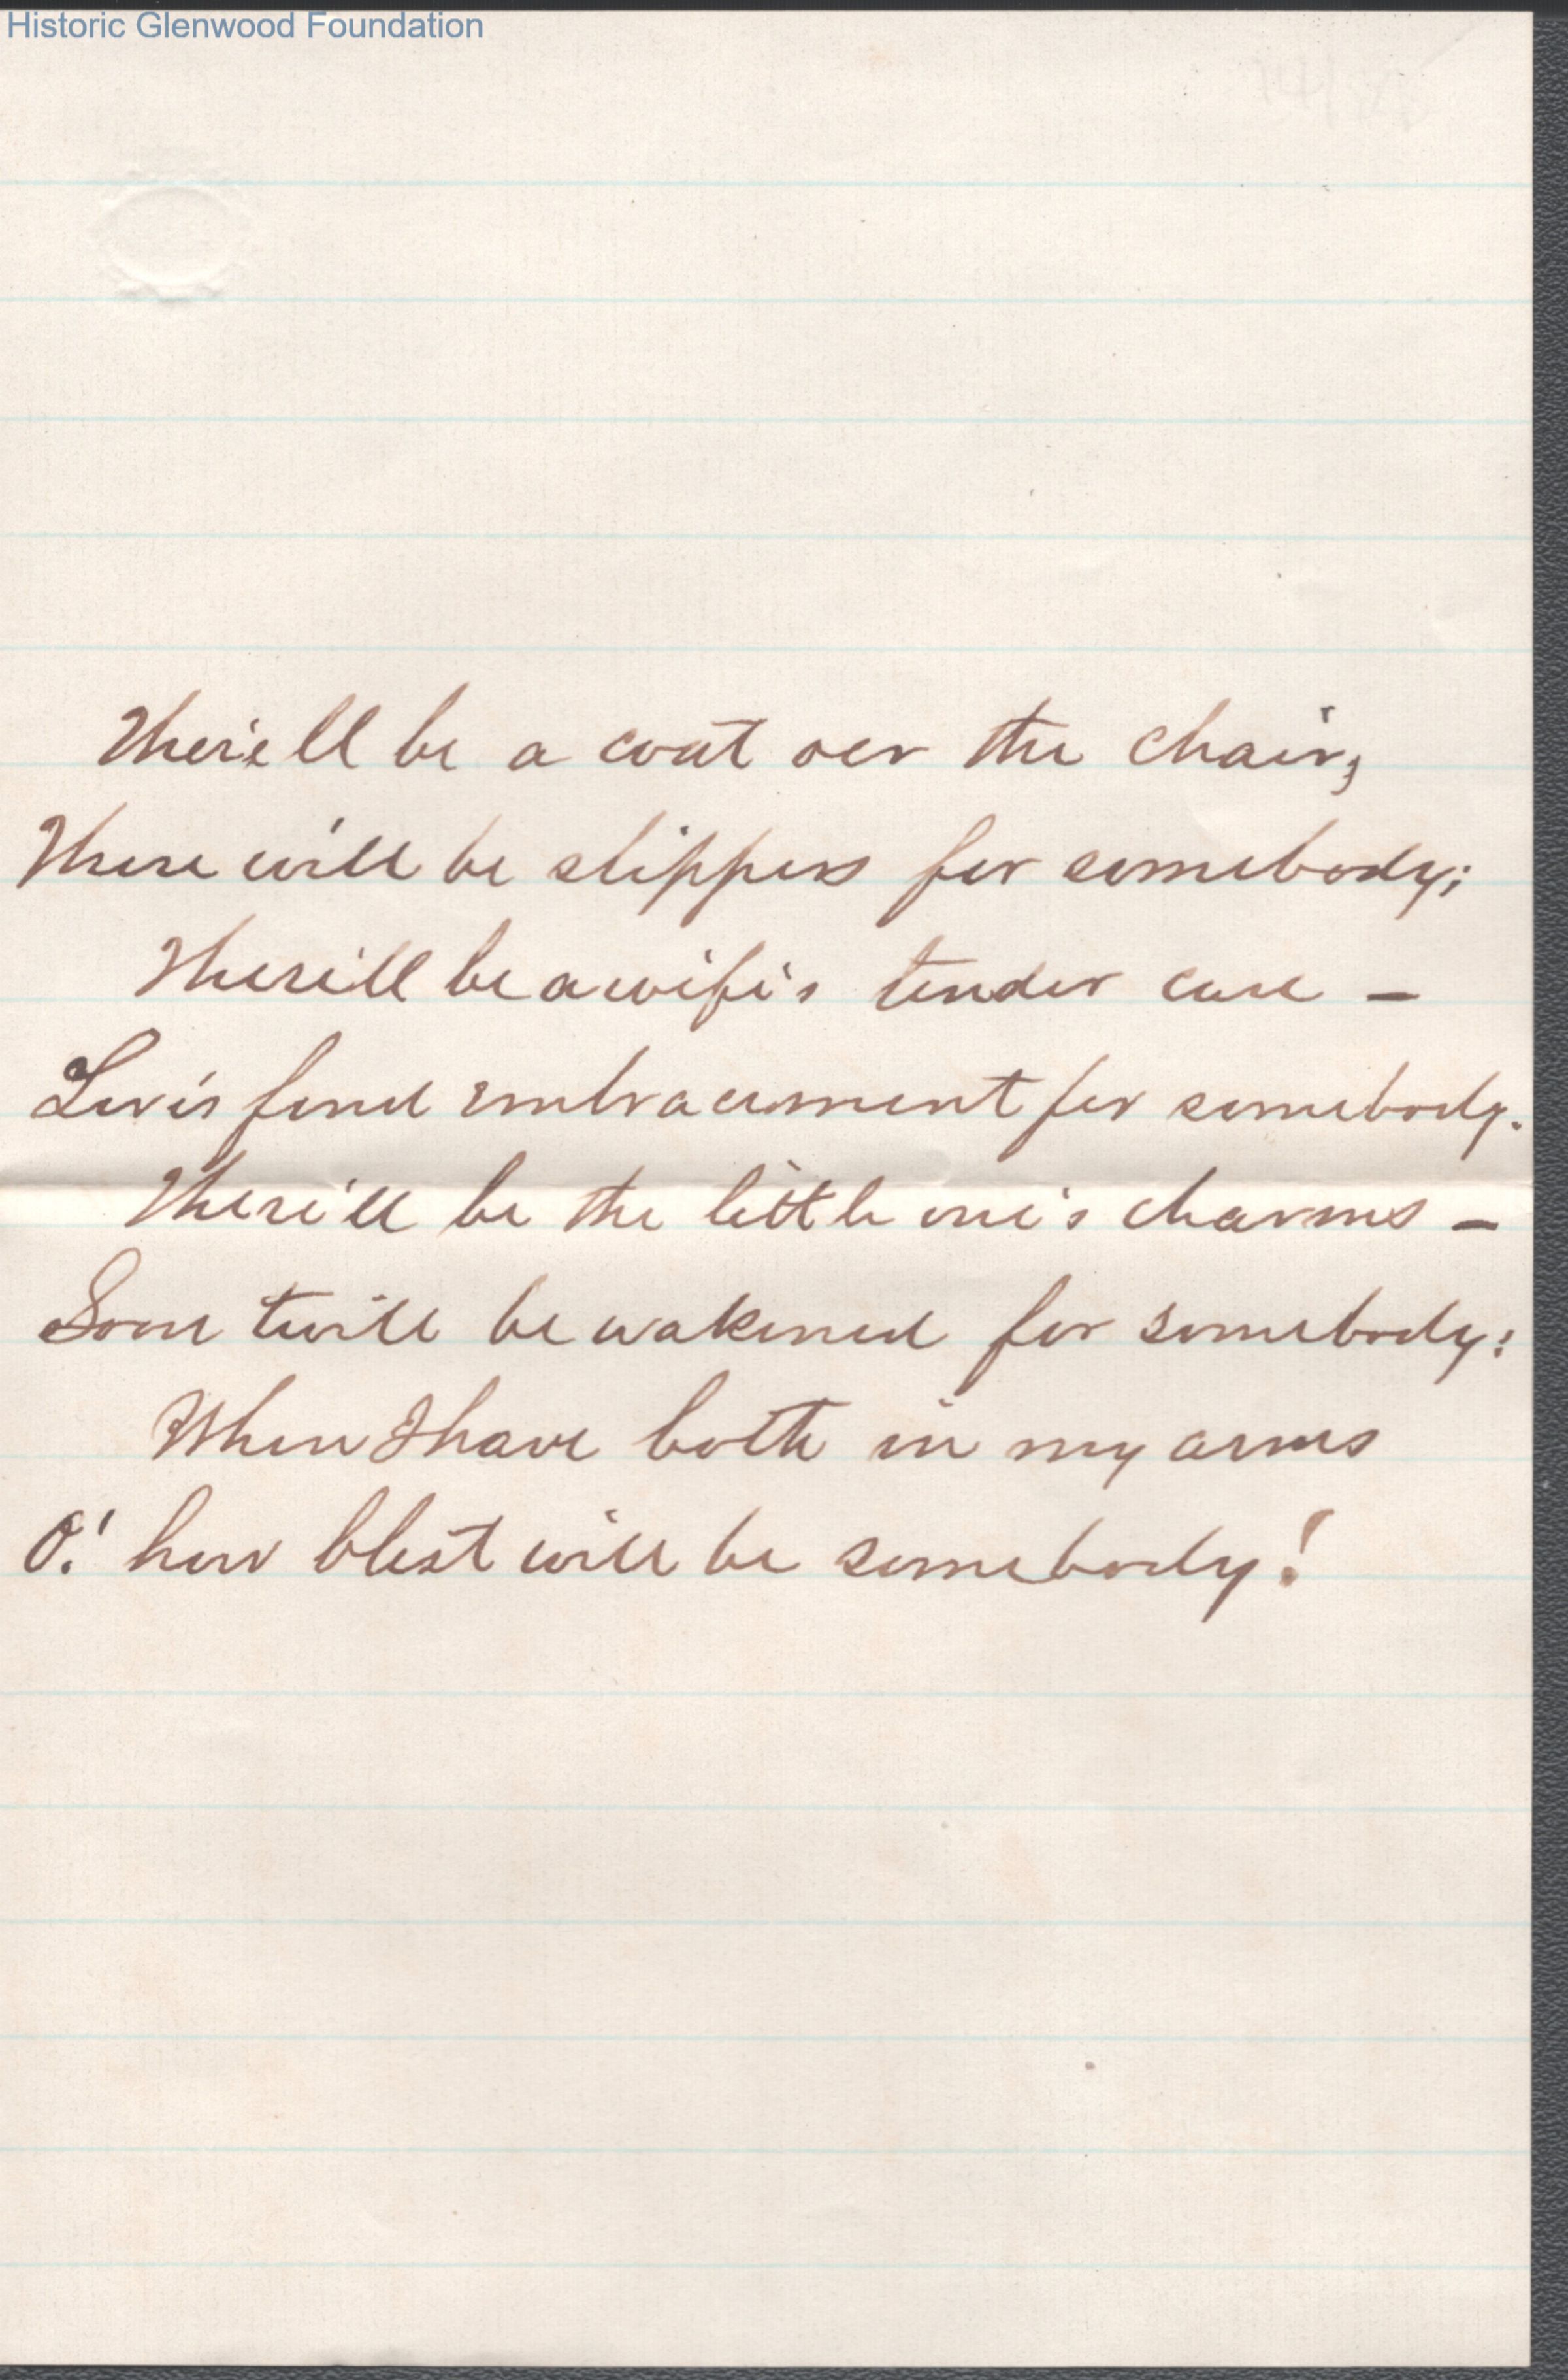 Historic Glenwood Foundation
There'll be a coat oer the chair,
There will be slippers for somebody;
There'll be a wife's tender care –
Love's fond embracement for somebody.
There'll be the little one's charms –
Soon 'twill be wakened for somebody:
When I have both in my arms
O! how blest will be somebody!